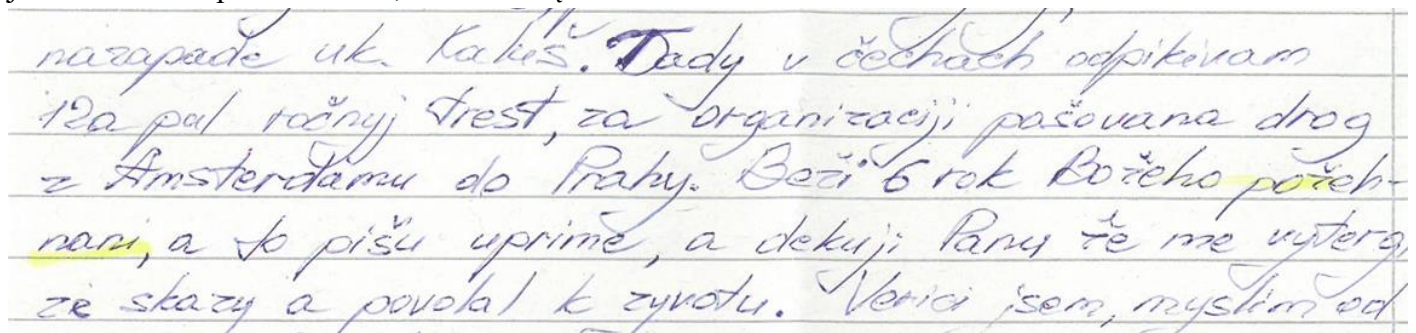 nazapade uk. Kaluš. Tady v čechach odpikivam
12a pul ročnyj trest, za organizaciji pašovana drog
z Amsterdamu do Prahy. Beži 6 rok Božeho požeh-
nani, a to pišu uprimě, a dekuji Panu že me vyterg
ze skazy a povolal k zyvotu. Verici jsem, myslim od